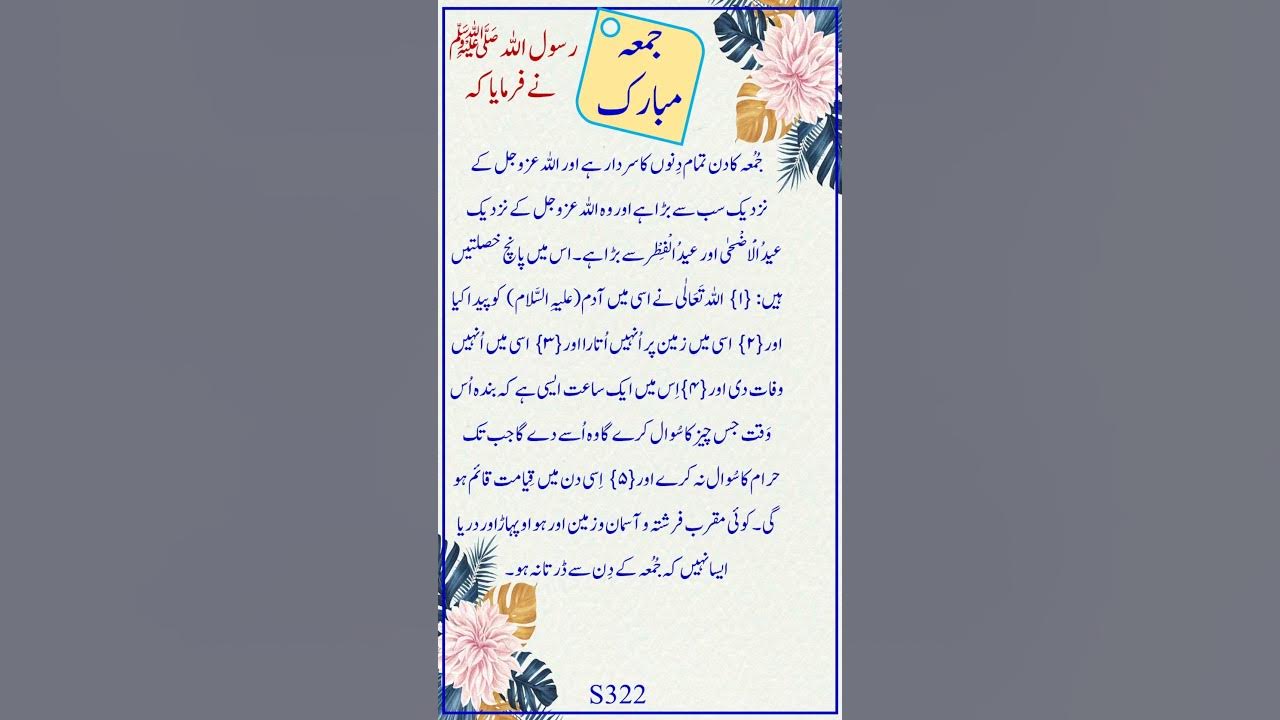 جمعہ
مبارک
رسول اللہ ﷺ
نے فرمایا کہ
جُمُعہ کا دن تمام دِنوں کا سردار ہے اور اللہ عزوجل کے
نزدیک سب سے بڑا ہے اور وہ اللہ عزوجل کے نزدیک
عیدُ الْاَضْحٰی اور عیدُ الْفِطْر سے بڑا ہے۔ اس میں پانچ خصلتیں
ہیں: {۱} اللہ تَعَالٰی نے اسی میں آدم (علیہِ السَّلام) کو پیدا کیا
اور {۲} اسی میں زمین پر اُنہیں اُتارا اور {۳} اسی میں اُنہیں
وفات دی اور {۴} اِس میں ایک ساعت ایسی ہے کہ بندہ اُس
وَقت جس چیز کا سُوال کرے گا وہ اُسے دے گا جب تک
حرام کا سُوال نہ کرے اور {۵} اِسی دن میں قِیامت قائم ہو
گی۔ کوئی مقرب فرشتہ و آسمان و زمین اور ہوا و پہاڑ اور دریا
ایسا نہیں کہ جُمُعہ کے دِن سے ڈرتا نہ ہو۔
S322